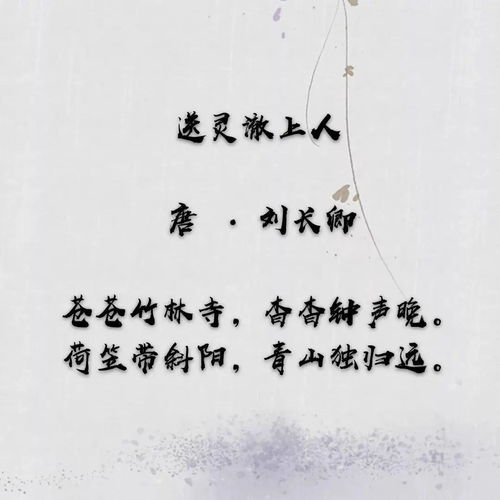 送灵澈上人
唐 · 刘长卿
苍苍竹林寺，杳杳钟声晚。
荷笠带斜阳，青山独归远。